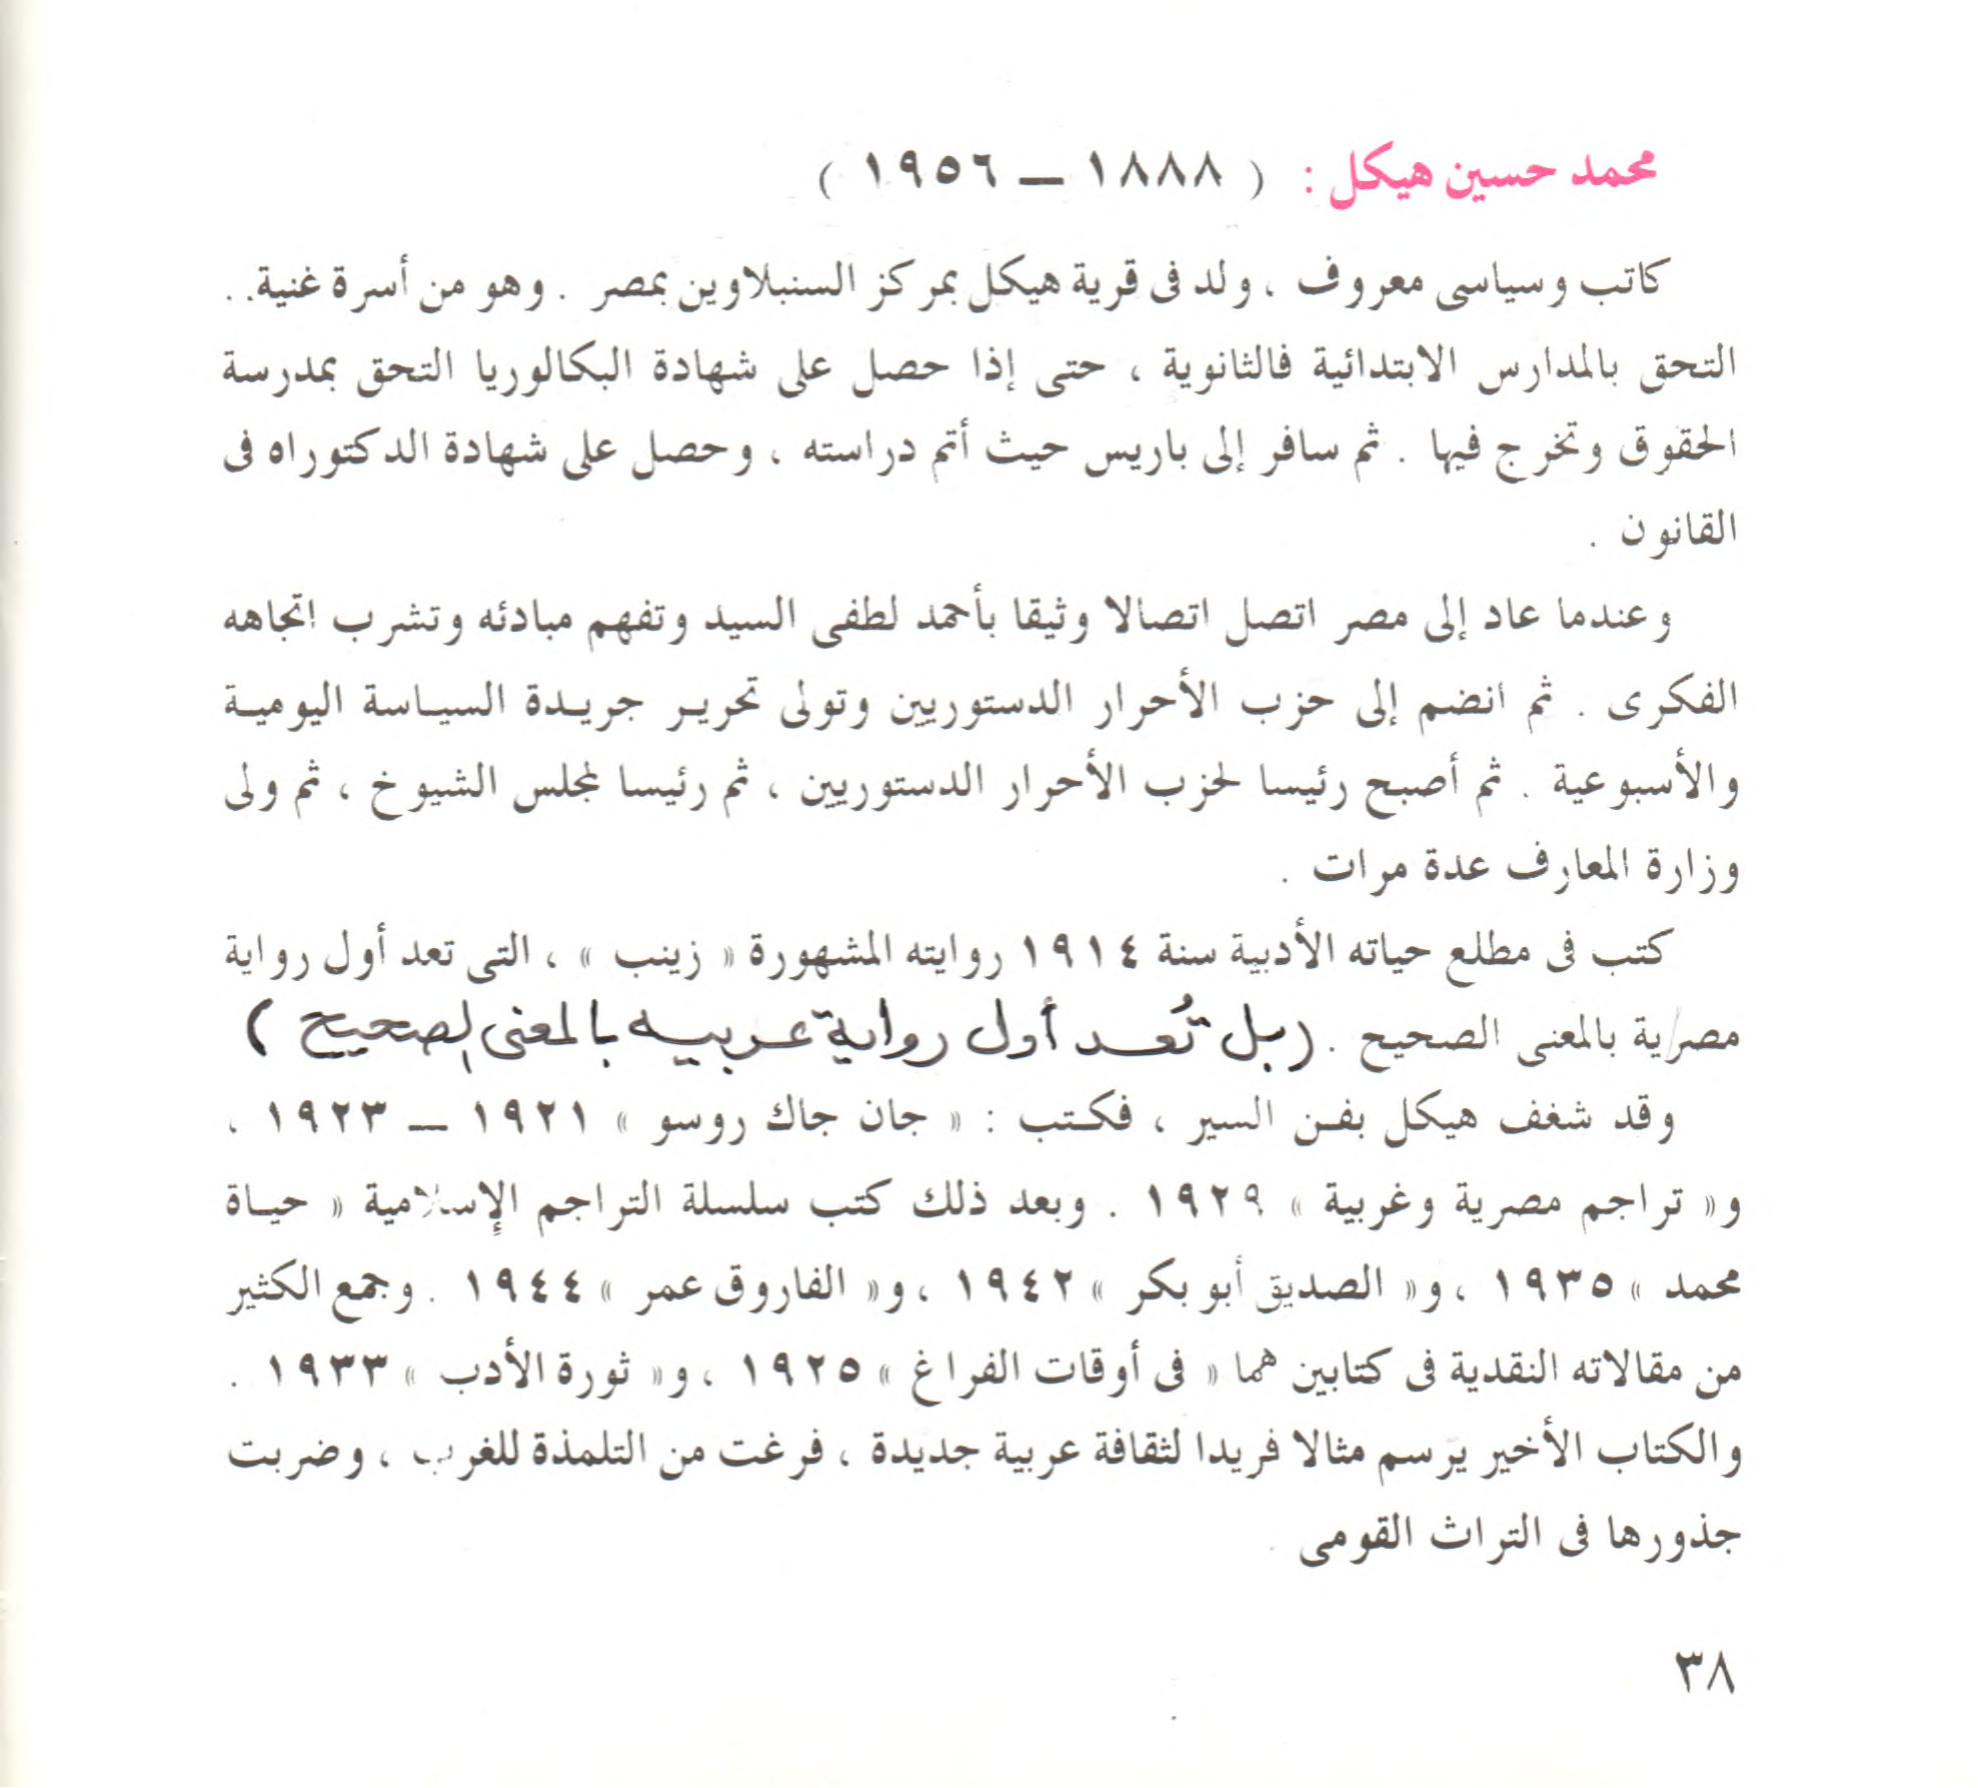 محمد حسين هيكل : ( ١٨٨٨ ـ ١٩٥٦ )
كاتب وسياسى معروف ، ولد فى قرية هيكل بمركز السنبلاوين بمصر . وهو من أسرة غنية . .
التحق بالمدارس الابتدائية فالثانوية ، حتى إذا حصل على شهادة البكالوريا التحق بمدرسة
الحقوق وتخرج فيها . ثم سافر إلى باريس حيث أتم دراسته ، وحصل على شهادة الدكتوراه فى
القانون .
وعندما عاد إلى مصر اتصل اتصالا وثيقا بأحمد لطفى السيد وتفهم مبادئه وتشرب اتجاهه
الفكرى . ثم انضم إلى حزب الأحرار الدستوريين وتولى تحرير جريدة السياسة اليومية
والأسبوعية . ثم أصبح رئيسا لحزب الأحرار الدستوريين ، ثم رئيسا لمجلس الشيوخ ، ثم ولى
وزارة المعارف عدة مرات .
كتب فى مطلع حياته الأدبية سنة ١٩١٤ روايته المشهورة « زينب » ، التى تعد أول رواية
مصرية بالمعنى الصحيح . (بل تُعد أول رواية عربيه بالمعنى الصحيح )
وقد شغف هيكل بفن السير ، فكتب : « جان جاك روسو » ١٩٢١ ـ ١٩٢٣ ،
و« تراجم مصرية وغربية » ١٩٢٩ . وبعد ذلك كتب سلسلة التراجم الإسلامية « حياة
محمد » ١٩٣٥ ، و« الصديق أبو بكر » ١٩٤٢ ، و« الفاروق عمر » ١٩٤٤ . وجمع الكثير
من مقالاته النقدية فى كتابين هما « فى أوقات الفراغ » ١٩٢٥ ، و« ثورة الأدب » ١٩٣٣ .
والكتاب الأخير يرسم مثالا فريدا لثقافة عربية جديدة ، فرغت من التلمذة للغرب ، وضربت
جذورها فى التراث القومى .
٣٨